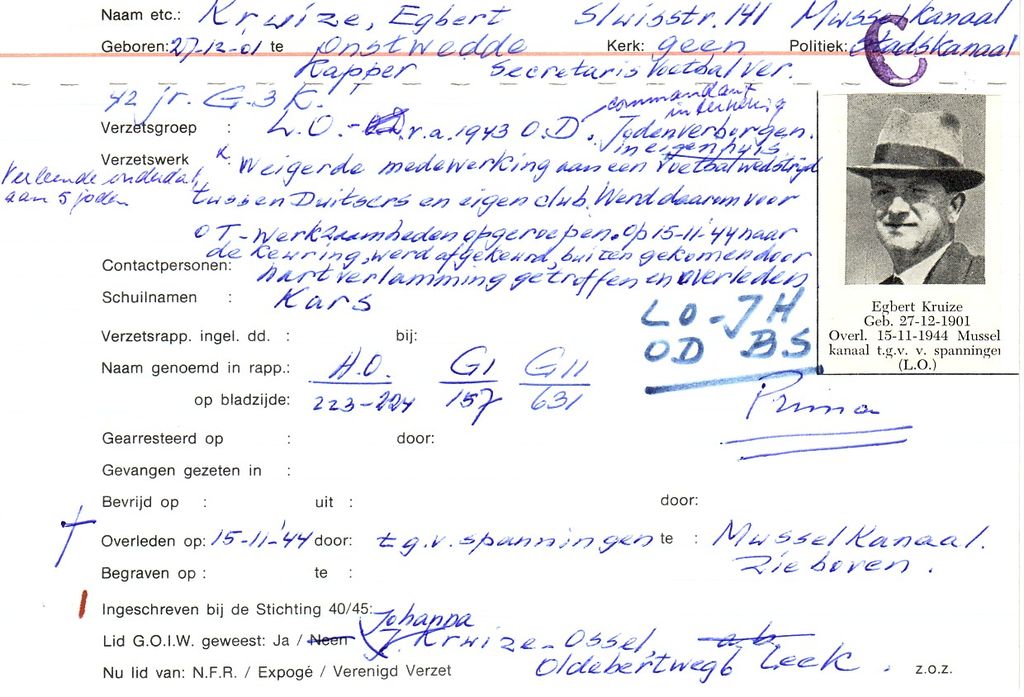 Naam etc.: Kruize, Egbert Sluisstr. 141 Musselkanaal
Geboren: 27-12-01 te Onstwedde Kerk: geen Politiek: Stadskanaal
C
Kapper Secretaris Voetbalver.
42 jr. G.3 K.
commandant
Verzetsgroep : L.O. - v.a. 1943 O.D. Jodenverborgen.
in eigen huis.
Verzetswerk Weigerde medewerking aan een Voetbalwedstrijd
Verleende onderdak
aan 5 joden
tussen Duitsers en eigen club. Werd daarom voor
O T-werkzaamheden opgeroepen. Op 15-11-'44 naar
de keuring, werd afgekeurd, buiten gekomen door
Contactpersonen: hartverlamming getroffen en overleden
Schuilnamen : Kars
LO-JH
OD BS
Egbert Kruize
Geb. 27-12-1901
Overl. 15-11-1944 Mussel
kanaal t.g.v. v. spanningen
(L.O.)
Verzetsrapp. ingel. dd. : bij:
Naam genoemd in rapp.: A.O. G I G II
op bladzijde: 223-224 157 631
Prima
Gearresteerd op : door:
Gevangen gezeten in :
Bevrijd op : uit : door:
Overleden op: 15-11-'44 door: t.g.v. spanningen te : Musselkanaal.
Zie boven.
Begraven op : te :
Ingeschreven bij de Stichting 40/45:
Johanna
Lid G.O.I.W. geweest: Ja / Neen J. Kruize-Ossel,
Nu lid van: N.F.R. / Expogé / Verenigd Verzet Oldebertweg 6 Leek. z.o.z.